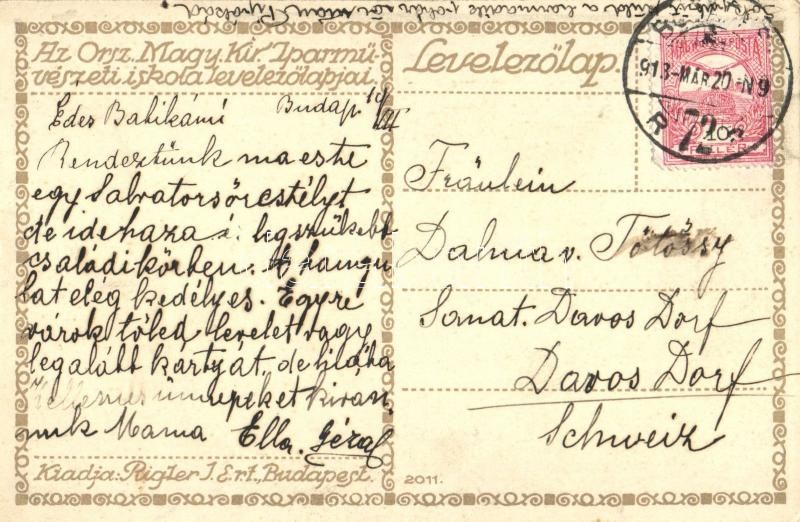 Az Orsz. Magy. Kir. Iparmű-
vészeti iskola levelezőlapjai.
Levelezőlap.
Budap.
913-MAR 20-N9
72
10
Edes
Rendeztünk ma este
egy Salvatorsörestélyt
de idehaza a legszűkebb
családi körben: A hangu
lat elég kedélyes. Egyre
várok tőled levelet vagy
legalább kártyát, de hiába
Kellemes ünnepeket kiván,
nuk Mama Ella. Géza
Fräulein
Dalma v. Tölössy
Sanat. Davos Dorf
Davos Dorf
Schweiz
Kiadja: Rigler J. E. r.t., Budapest.
2011.